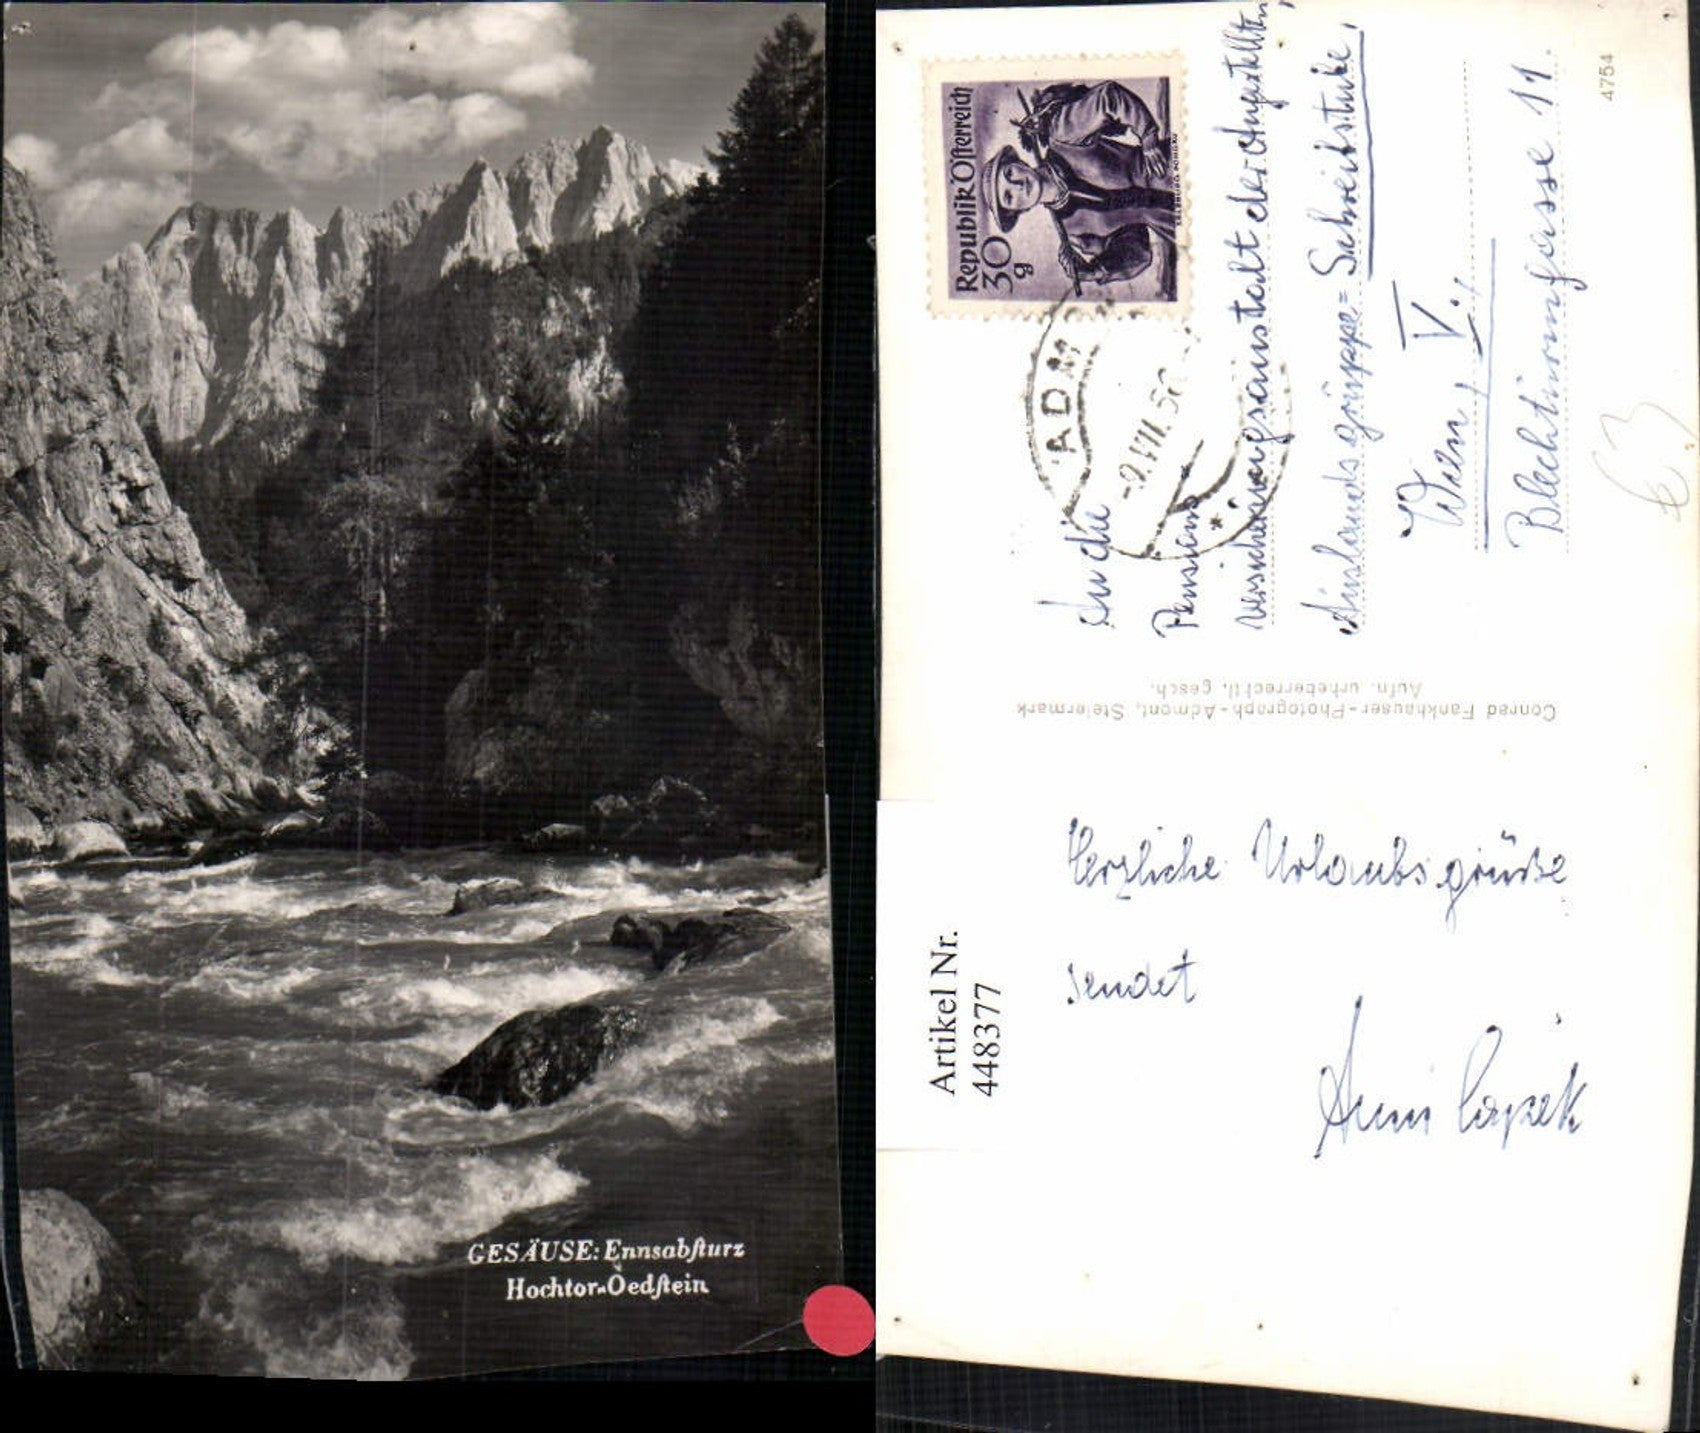 GESÄUSE: Ennsabſturz
Hochtor-Oedſtein
Republik Öſterreich
30
g
SALZBURG PONGAU
ADM
-9.VII.5
An die
Pensions
versicherungsanstalt der Angestellten,
Auslandsgruppe= Schreibstube,
Wien, V.,
Blechturmgasse 11.
4754
Conrad Fankhauser-Photograph-Admont, Steiermark
Aufn. urheberrechtl. gesch.
Herzliche Urlaubsgrüße
sendet
Anni Capek
Artikel Nr.
448377